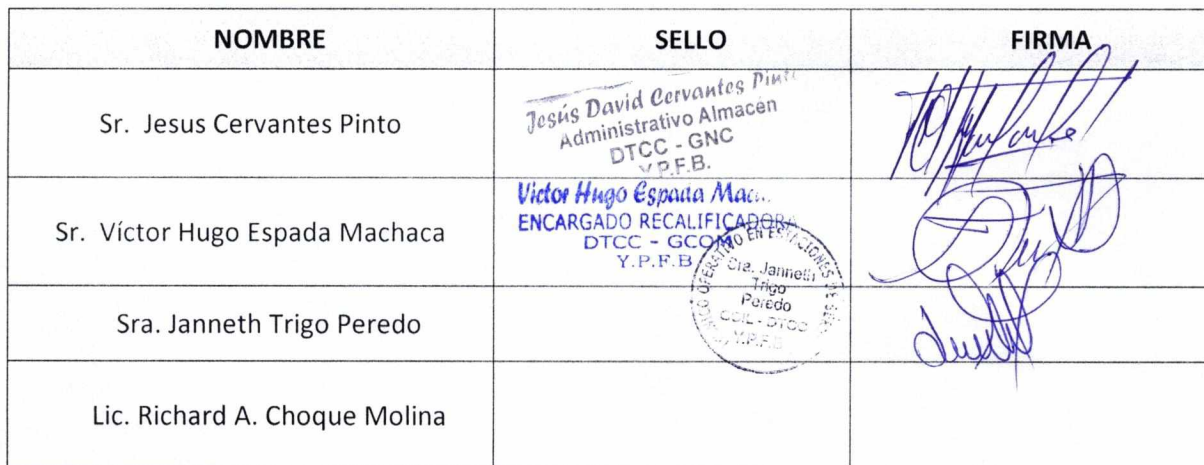 NOMBRE SELLO FIRMA
Sr. Jesus Cervantes Pinto
Jesús David Cervantes Pinto
Administrativo Almacén
DTCC - GNC
Y.P.F.B.
Sr. Víctor Hugo Espada Machaca
Victor Hugo Espada
ENCARGADO RECALIFICADORA
DTCC - GCOM
Y.P.F.B
Sra. Janneth Trigo Peredo
OPERATIVO EN ESTACIONES DE
Sra. Janneth
Trigo
Peredo
DTCC
Y.P.F.B
Lic. Richard A. Choque Molina